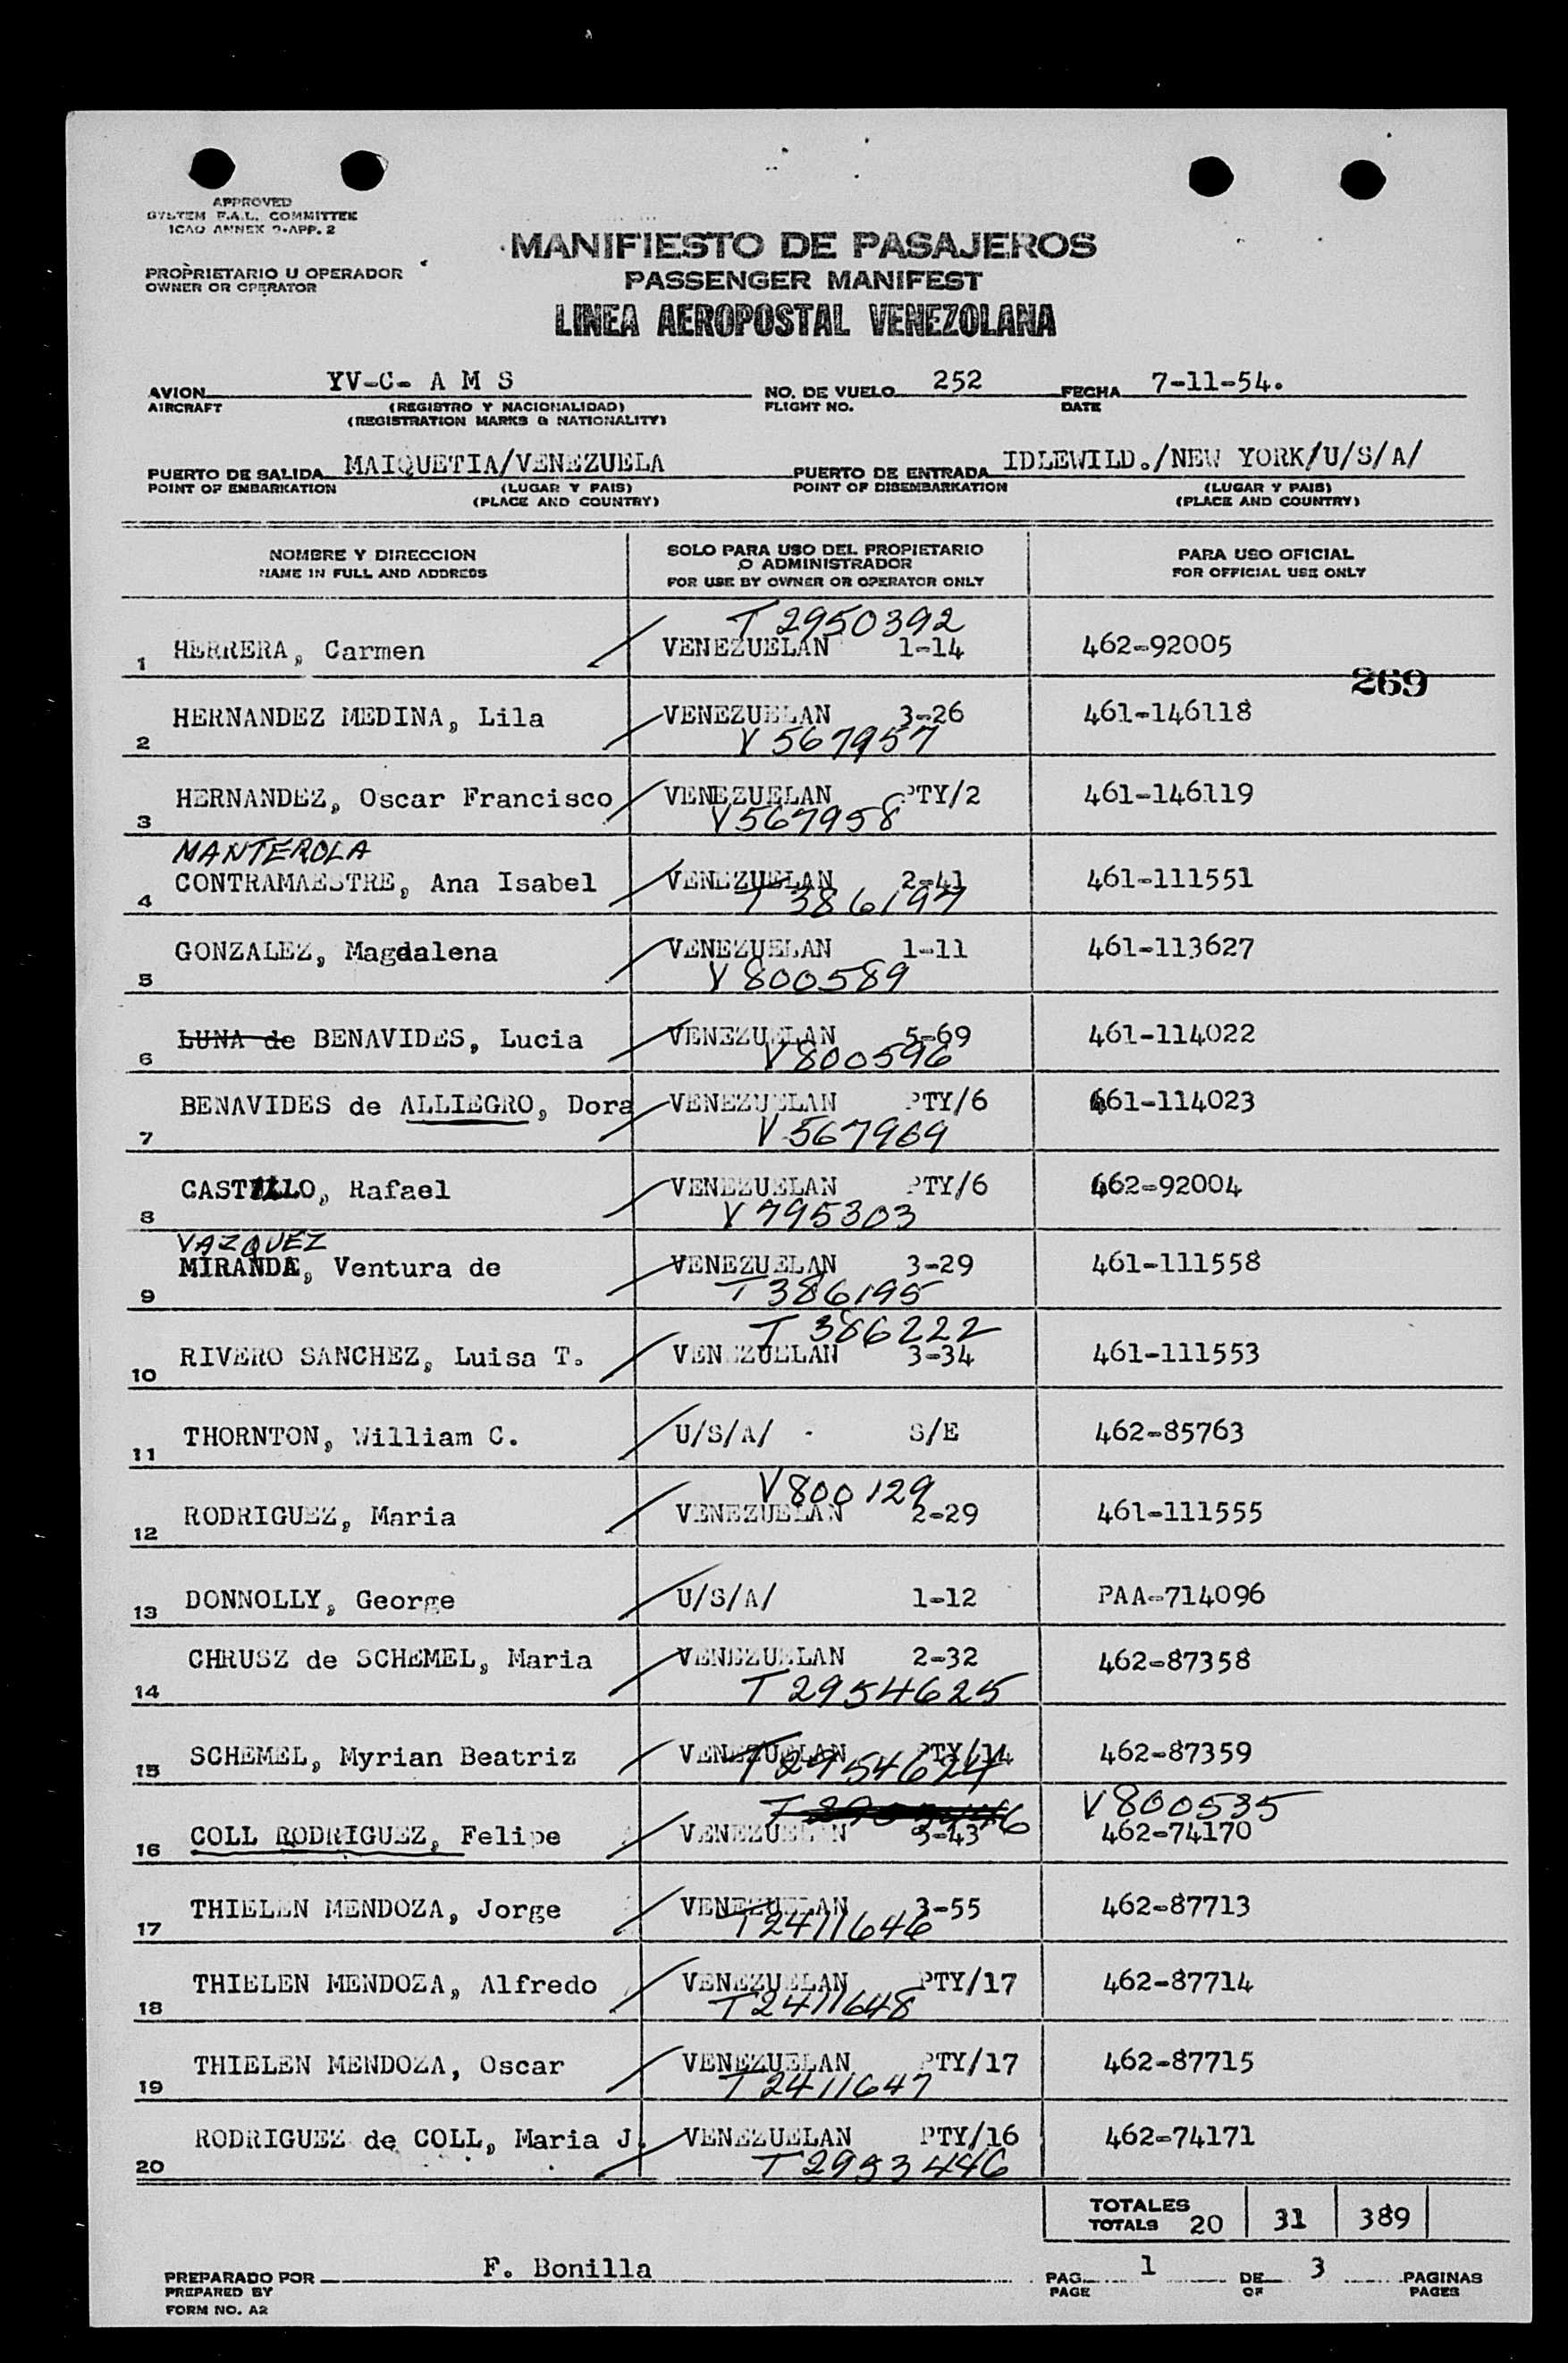 APPROVED
SYSTEM F.A.L. COMMITTEE
ICAO ANNEX 9-APP. 2
MANIFIESTO DE PASAJEROS
PROPRIETARIO U OPERADOR
OWNER OR OPERATOR
PASSENGER MANIFEST
LINEA AEROPOSTAL VENEZOLANA
AVION YV-C- A M S NO. DE VUELO 252 FECHA 7-11-54.
AIRCRAFT (REGISTRO Y NACIONALIDAD) FLIGHT NO. DATE
(REGISTRATION MARKS & NATIONALITY)
PUERTO DE SALIDA MAIQUETIA/VENEZUELA PUERTO DE ENTRADA IDLEWILD./NEW YORK/U/S/A/
POINT OF EMBARKATION (LUGAR Y PAIS) POINT OF DISEMBARKATION (LUGAR Y PAIS)
(PLACE AND COUNTRY) (PLACE AND COUNTRY)
NOMBRE Y DIRECCION SOLO PARA USO DEL PROPIETARIO PARA USO OFICIAL
O ADMINISTRADOR
NAME IN FULL AND ADDRESS FOR USE BY OWNER OR OPERATOR ONLY FOR OFFICIAL USE ONLY
T 2950392
1 HERRERA, Carmen VENEZUELAN 1-14 462-92005
269
2 HERNANDEZ MEDINA, Lila VENEZUELAN 3-26 461-146118
V 567957
3 HERNANDEZ, Oscar Francisco VENEZUELAN PTY/2 461-146119
V567958
MANTEROLA
4 CONTRAMAESTRE, Ana Isabel VENEZUELAN 2-41 461-111551
T 386197
5 GONZALEZ, Magdalena VENEZUELAN 1-11 461-113627
V 800589
6 LUNA de BENAVIDES, Lucia VENEZUELAN 5-69 461-114022
V800596
7 BENAVIDES de ALLIEGRO, Dora VENEZUELAN PTY/6 461-114023
V 567969
8 CASTILLO, Rafael VENEZUELAN PTY/6 462-92004
V 795303
VAZQUEZ
9 MIRANDA, Ventura de VENEZUELAN 3-29 461-111558
T 386195
T 386222
10 RIVERO SANCHEZ, Luisa T. VENEZUELAN 3-34 461-111553
11 THORNTON, William C. U/S/A/ - S/E 462-85763
V800129
12 RODRIGUEZ, Maria VENEZUELAN 2-29 461-111555
13 DONNOLLY, George U/S/A/ 1-12 PAA-714096
14 CHRUSZ de SCHEMEL, Maria VENEZUELAN 2-32 462-87358
T 2954625
15 SCHEMEL, Myrian Beatriz VENEZUELAN PTY/14 462-87359
T2954624
V800535
16 COLL RODRIGUEZ, Felipe VENEZUELAN 3-43 462-74170
17 THIELEN MENDOZA, Jorge VENEZUELAN 3-55 462-87713
T2411646
18 THIELEN MENDOZA, Alfredo VENEZUELAN PTY/17 462-87714
T2411648
19 THIELEN MENDOZA, Oscar VENEZUELAN PTY/17 462-87715
T2411647
20 RODRIGUEZ de COLL, Maria J. VENEZUELAN PTY/16 462-74171
T 2953446
TOTALES
TOTALS 20 31 389
PREPARADO POR F. Bonilla PAG. 1 DE 3 PAGINAS
PREPARED BY PAGE OF PAGES
FORM NO. A2